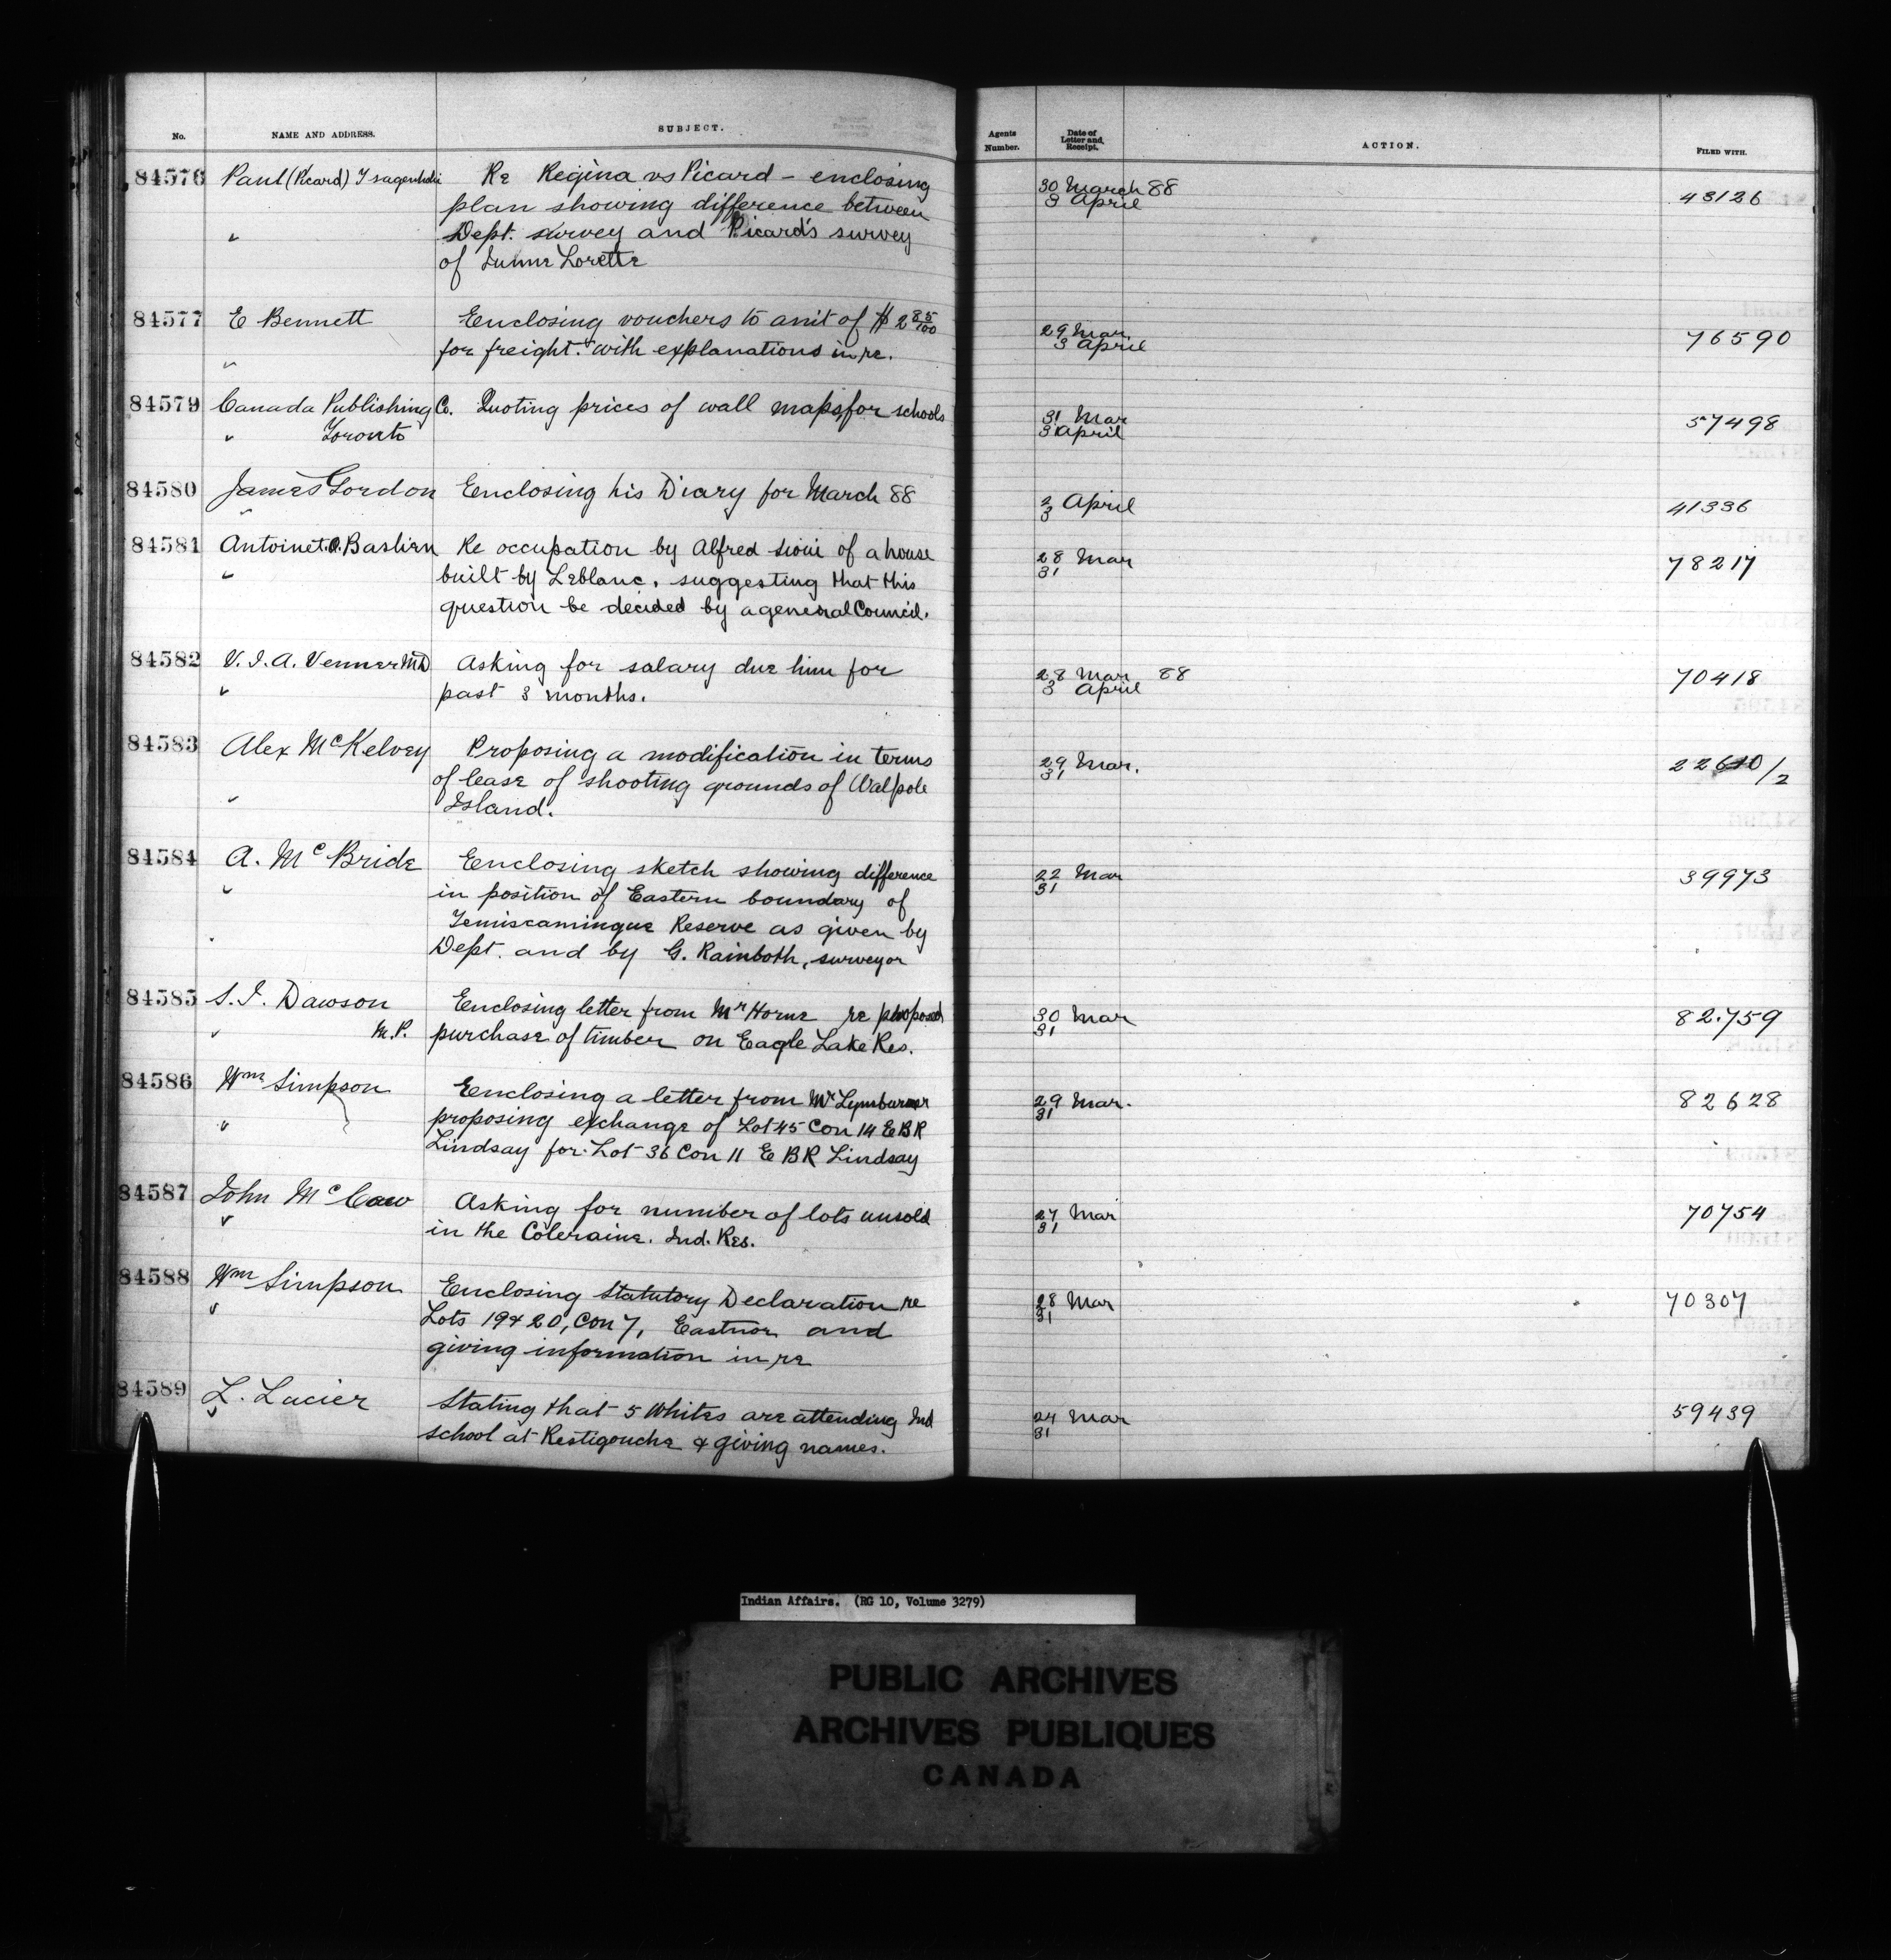 No. NAME AND ADDRESS. SUBJECT. Agents Number. Date of Letter and Receipt. ACTION. FILED WITH.
84576 Paul (Picard) Re Regina vs Picard – enclosing 30 March 88 43126
plan showing difference between 3 April
Dept. survey and Picard's survey
of Lorette
84577 E Bennett Enclosing vouchers to amt of $2 85/100 29 Mar 76590
for freight. with explanations in re. 3 April
84579 Canada Publishing Co. Quoting prices of wall maps for schools 31 Mar 57498
Toronto 3 April
84580 James Gordon Enclosing his Diary for March 88 2 April 41336
3
84581 Antoine O. Bastien Re occupation by Alfred Sioui of a house 28 Mar 78217
built by Leblanc. suggesting that this 31
question be decided by a general Council.
84582 V. J. A. Venner MD Asking for salary due him for 28 Mar 88 70418
past 3 months. 3 April
84583 Alex McKelvey Proposing a modification in terms 29 Mar.
of lease of shooting grounds of Walpole 31
Island.
84584 A. McBride Enclosing sketch showing difference 22 Mar 39973
in position of Eastern boundary of 31
Temiscamingue Reserve as given by
Dept. and by G. Rainboth, surveyor
84585 S. J. Dawson Enclosing letter from Mr Horne re proposed 30 Mar 82759
M.P. purchase of timber on Eagle Lake Res. 31
84586 Wm Simpson Enclosing a letter from Mr Lymburner 29 Mar. 82628
proposing exchange of Lot 45 Con 14 E B R 31
Lindsay for Lot 36 Con 11 E B R Lindsay
84587 John McCaw Asking for number of lots unsold 27 Mar 70754
in the Coleraine. Ind. Res. 31
84588 Wm Simpson Enclosing Statutory Declaration re 28 Mar 70307
Lots 19 & 20, Con 7, Eastnor and 31
giving information in re
84589 L. Lucier Stating that 5 Whites are attending Ind 24 Mar 59439
school at Restigouche & giving names. 31
Indian Affairs. (RG 10, Volume 3279)
PUBLIC ARCHIVES
ARCHIVES PUBLIQUES
CANADA